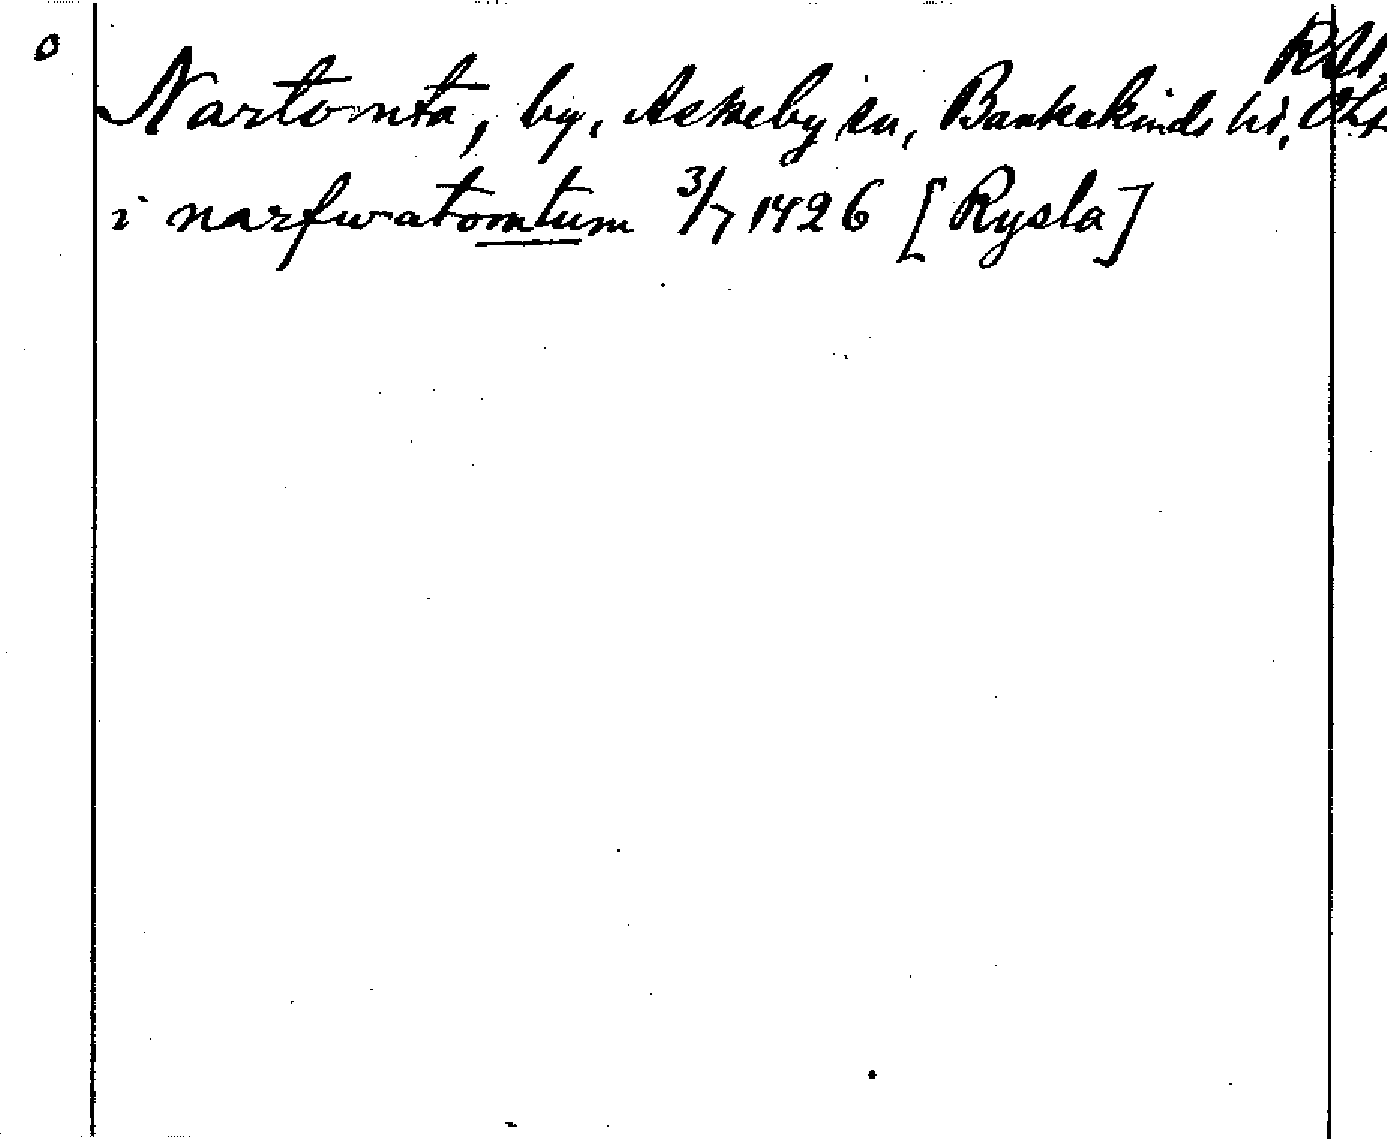 o
Nartomta, by, Askeby sn, Bankekinds hd, Östg
i narfwatomtum 3/7 1426 [Rysla]